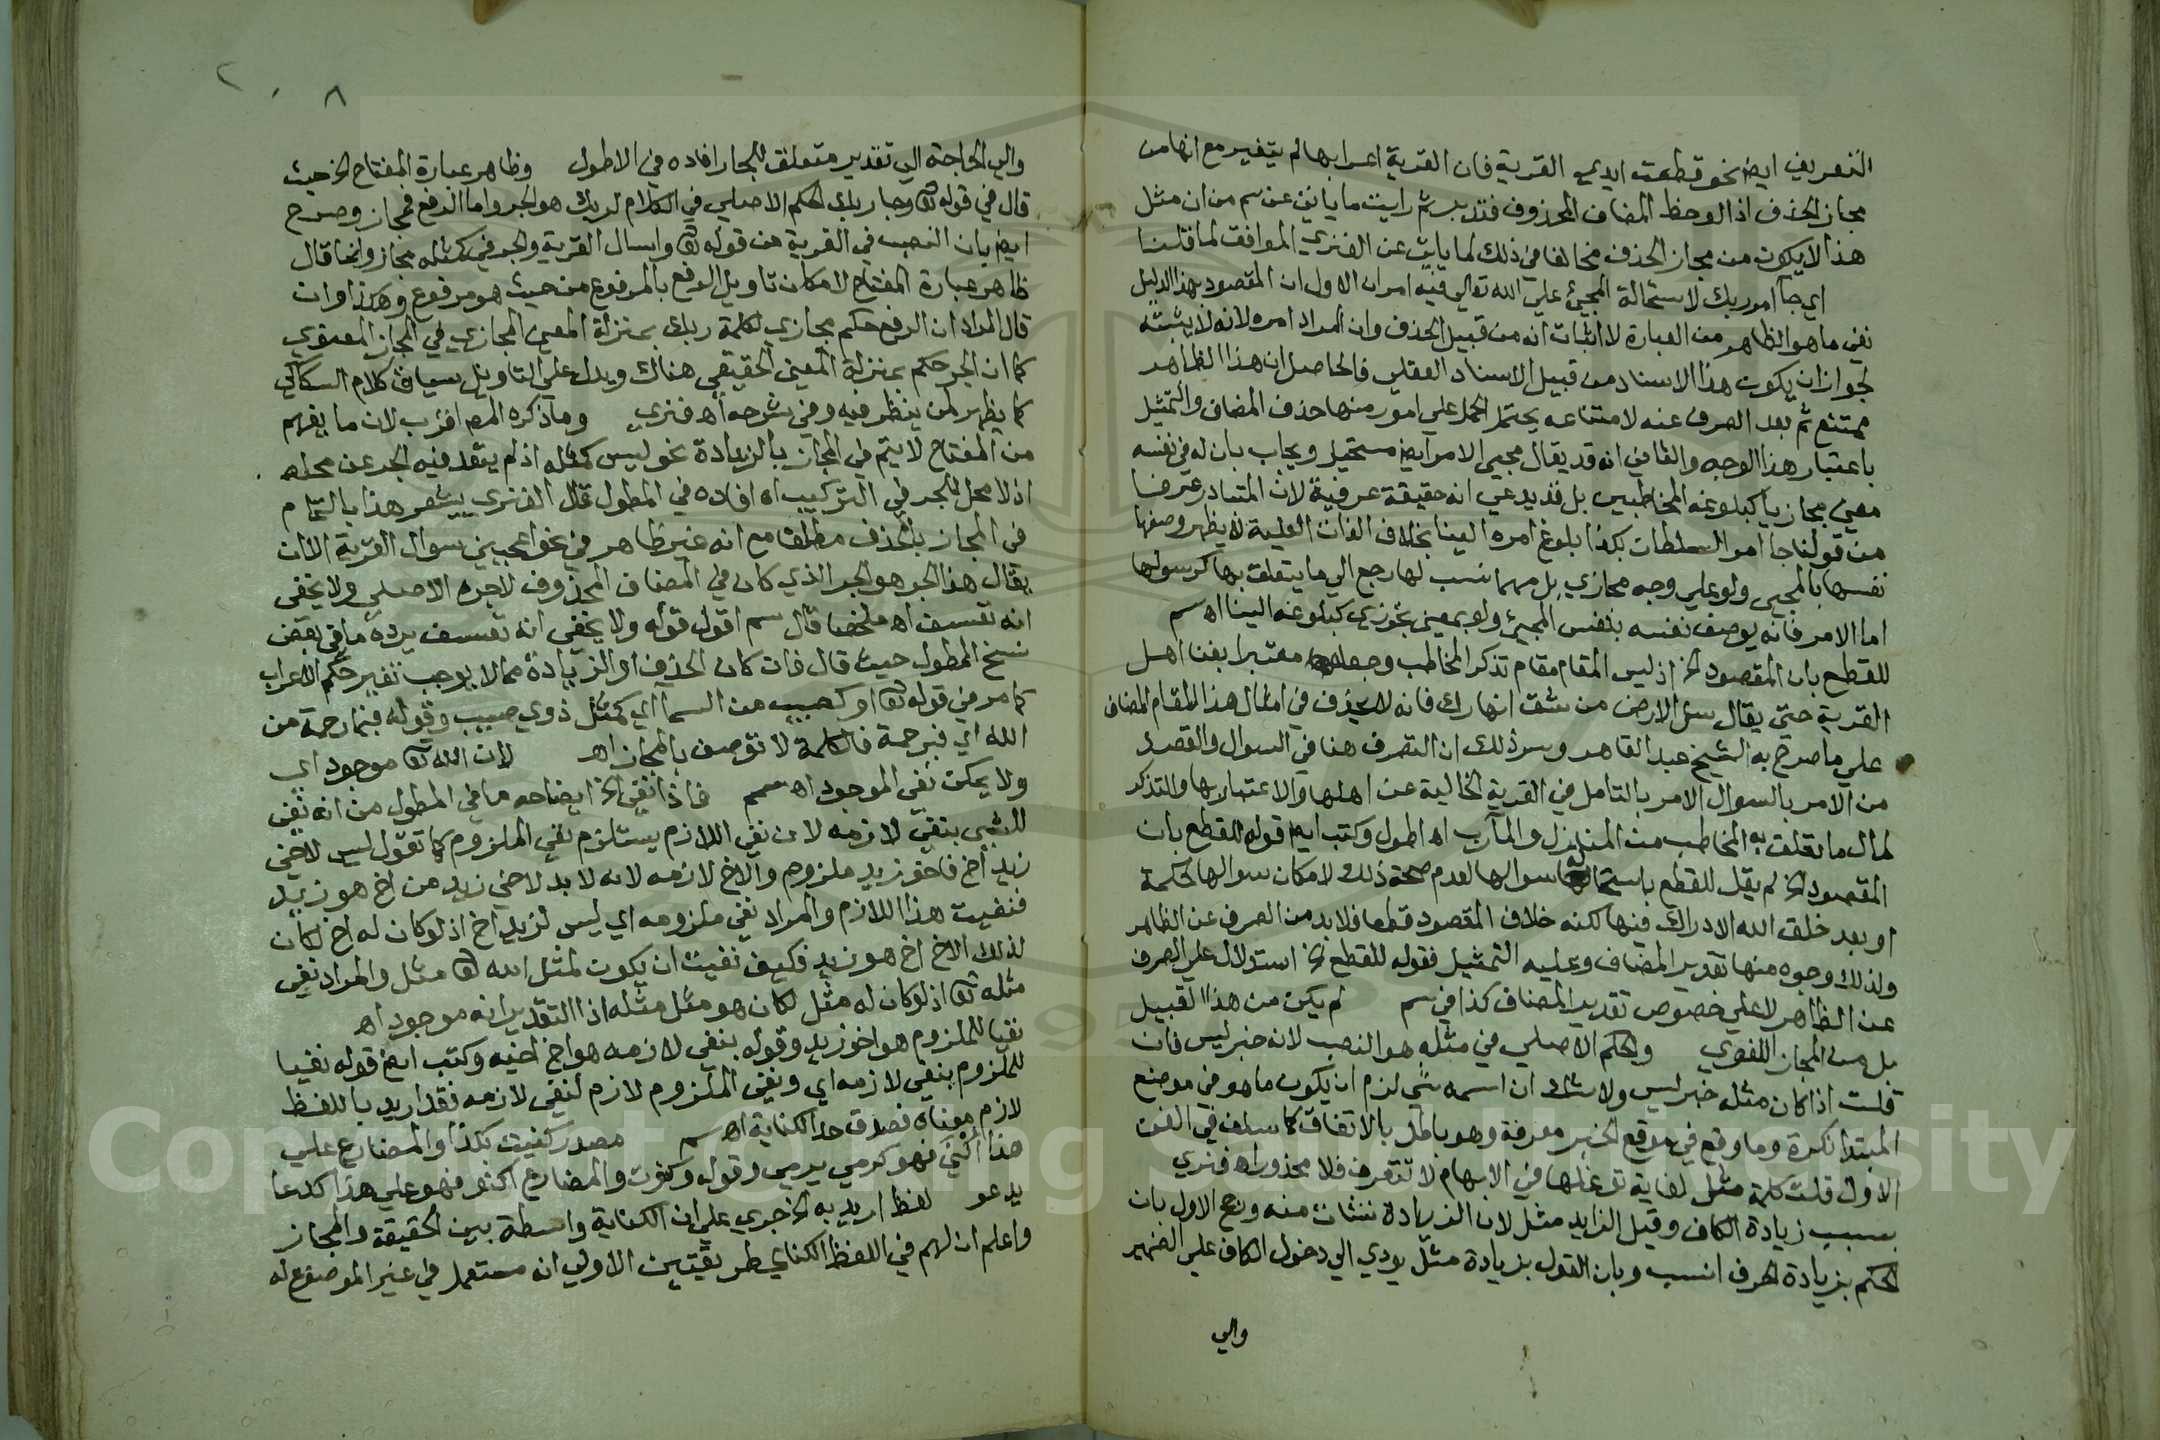 التعريف ايض نحو قطعت ايدي القرية فان القرية اعرابها لم يتغير مع انها من
مجاز الحذف اذا لوحظ المضاف المحذوف فتدبر ثم رايت ما ياتي عن سم من ان مثل
هذا لا يكون من مجاز الحذف مخالفا في ذلك لما ياتي عن الفنري الموافق لما قلنا
اي جا امر ربك لاستحالة المجيئ علي الله تعالي فيه امران الاول ان المقصود بهذا الدليل
نفي ما هو الظاهر من العبارة لا اثبات انه من قبيل الحذف وان المراد امره لانه لا يثبته
لجواز ان يكون هذا الاسناد من قبيل الاسناد العقلي فالحاصل ان هذا الظاهر
ممتنع ثم بعد الصرف عنه لامتناعه يحتمل الحمل علي امور منها حذف المضاف والتمثيل
باعتبار هذا الوجه والثاني انه قد يقال مجيئ الامر ايض مستحيل ويجاب بان له في نفسه
معني مجازيا كبلوغه المخاطبين بل قد يدعي انه حقيقة عرفية لان المتبادر عرفا
من قولنا جا امر السلطان بكذا بلوغ امره الينا بخلاف الذات العلية لا يظهر وصفها
نفسها بالمجيئ ولو علي وجه مجازي بل مهما نسب لها رجع الي ما يتعلق بها كرسولها
اما الامر فانه يوصف نفسه بنفس المجيئ ولو بمعني تجوزي كبلوغه الينا اه سم
للقطع بان المقصود الخ اذ ليس المقام مقام تذكر المخاطب وجعله معتبرا بفنا اهل
القرية حتي يقال سئل الارض من شق انهارك فانه لا يحذف في امثال هذا المقام المضاف
علي ما صرح به الشيخ عبد القاهر وسر ذلك ان التصرف هنا في السوال والقصد
من الامر بالسوال الامر بالتامل في القرية الخالية عن اهلها والاعتبار بها والتذكر
لمال ما تعلق به المخاطب من المنازل والمآرب اه اطول وكتب ايض قوله للقطع بان
المقصود الخ لم يقل للقطع باستحالة سوالها لعدم صحة ذلك لامكان سوالها لحكمة
او بعد خلق الله الادراك فيها لكنه خلاف المقصود قطعا فلا بد من الصرف عن الظاهر
ولذلك وجوه منها تقدير المضاف وعليه التمثيل فقوله للقطع الخ استدلال علي الصرف
عن الظاهر لا علي خصوص تقدير المضاف كذا في سم لم يكن من هذا القبيل
بل من المجاز اللغوي والحكم الاصلي في مثله هو النصب لانه خبر ليس فان
قلت اذا كان مثله خبر ليس ولا شك ان اسمه شي لزم ان يكون ما هو في موضع
المبتدا نكرة وما وقع في موقع الخبر معرفة وهو باطل بالاتفاق كما سلف في الفن
الاول قلت كلمة مثل لغاية توغلها في الابهام لا تتعرف فلا محذور اه فنري
بسبب زيادة الكاف وقيل الزايد مثل لان الزيادة نشات منه ورجح الاول بان
الحكم بزيادة الحرف انسب وبان القول بزيادة مثل يودي الي دخول الكاف علي الضمير
والي
٢٠٨
والي الحاجة الي تقدير متعلق للجار افاده في الاطول وظاهر عبارة المفتاح الخ حيث
قال في قوله تع وجا ربك الحكم الاصلي في الكلام لربك هو الجر واما الرفع فمجاز وصرح
ايض بان النصب في القرية من قوله تع واسال القرية والجر في كمثله مجاز وانما قال
ظاهر عبارة المفتاح لامكان تاويل الرفع بالمرفوع من حيث هو مرفوع وهكذا وان
قال المراد ان الرفع حكم مجازي لكلمة ربك بمنزلة المعني المجازي في المجاز المعنوي
كما ان الجر حكم بمنزلة المعني الحقيقي هناك ويدل علي التاويل سياق كلام السكاكي
كما يظهر لمن ينظر فيه وفي شرحه اه فنري وما ذكره المص اقرب لان ما يفهم
من المفتاح لا يتم في المجاز بالزيادة نحو ليس كمثله اذ لم ينقد فيه الجر عن محله
اذ لا محل للجر في التركيب اه افاده في المطول قال الفنري يشعر هذا بالتمام
في المجاز بالحذف مطلقا مع انه غير ظاهر في نحو اعجبني سوال القرية الا ان
يقال هذا الجر هو الجر الذي كان في المضاف المحذوف لا جره الاصلي ولا يخفي
انه تعسف اه ملخصا قال سم اقول قوله ولا يخفي انه تعسف يرده ما في بعض
نسخ المطول حيث قال فان كان الحذف او الزيادة مما لا يوجب تغيير حكم الاعراب
كما مر في قوله تع او كصيب من السما اي كمثل ذوي صيب وقوله فبما رحمة من
الله اي فبرحمة فالكلمة لا توصف بالمجاز اه لان الله تع موجود اي
ولا يمكن نفي الموجود اه سم فاذا نفي الخ ايضاحه ما في المطول من انه نفي
للشي بنفي لازمه لان نفي اللازم يستلزم نفي الملزوم كما تقول ليس لاخي
زيد اخ فاخو زيد ملزوم والاخ لازمه لانه لا بد لاخي زيد من اخ هو زيد
فنفيت هذا اللازم والمراد نفي ملزومه اي ليس لزيد اخ اذ لو كان له اخ لكان
لذلك الاخ اخ هو زيد فكيف نفيت ان يكون لمثل الله تع مثل والمراد نفي
مثله تع اذ لو كان له مثل لكان هو مثل مثله اذ التقدير انه موجود اه
نفيا للملزوم هو اخو زيد وقوله بنفي لازمه هو اخ اخيه وكتب ايض قوله نفيا
للملزوم بنفي لازمه اي ونفي الملزوم لازم لنفي لازمه فقد اريد باللفظ
لازم معناه فصدق حد الكناية اه سم مصدر كنيت بكذا والمضارع علي
هذا اكني فهو كرمي يرمي وقوله وكنوت والمضارع اكنو فهو علي هذا كدعا
يدعو لفظ اريد به الخ جري علي ان الكناية واسطة بين الحقيقة والمجاز
واعلم ان لهم في اللفظ الكنائي طريقتين الاولي انه مستعمل في غير الموضوع له
Copyright © King Saud University